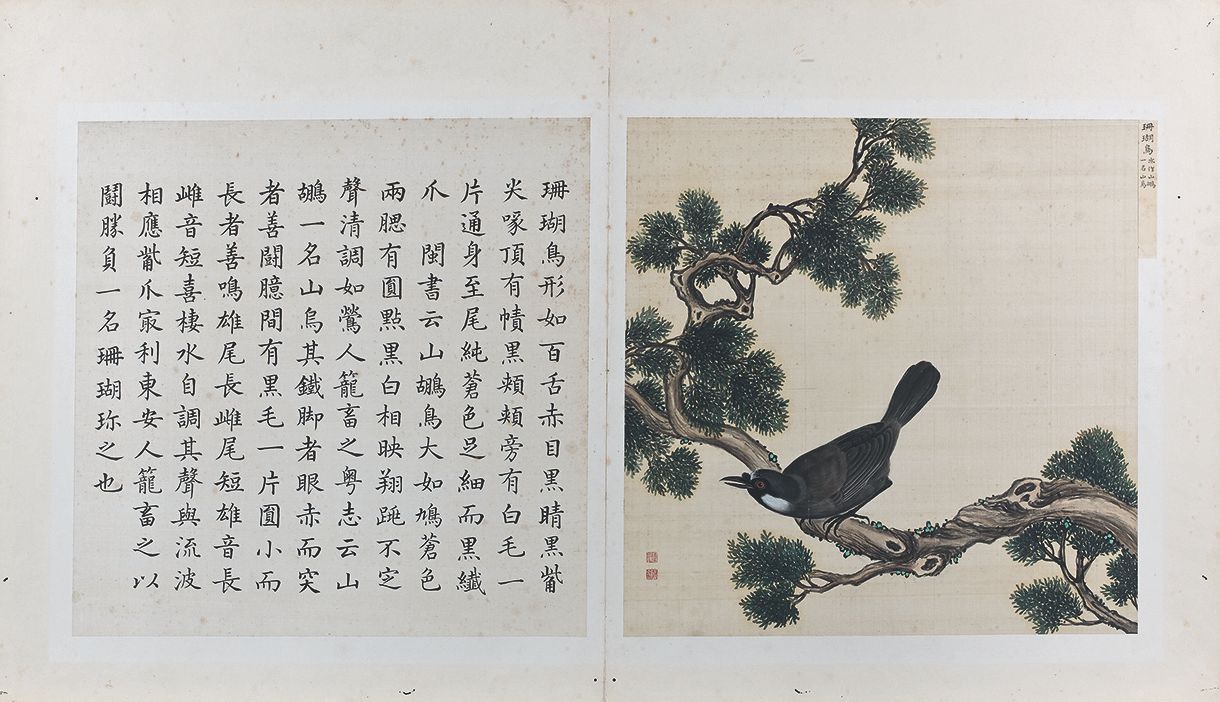 珊瑚鳥
一名山烏
珊瑚鳥形如百舌赤目黑睛黑觜
尖喙頂有幘黑頰頰旁有白毛一
片通身至尾純蒼色足細而黑纖
爪　閩書云山鶘鳥大如鳩蒼色
兩腮有圓點黑白相映翔跳不定
聲清調如鶯人籠畜之粵志云山
鶘一名山烏其鐵脚者眼赤而突
者善鬭臆間有黑毛一片圓小而
長者善鳴雄尾長雌尾短雄音長
雌音短喜棲水自調其聲與流波
相應觜爪㝡利東安人籠畜之以
鬭勝負一名珊瑚珍之也